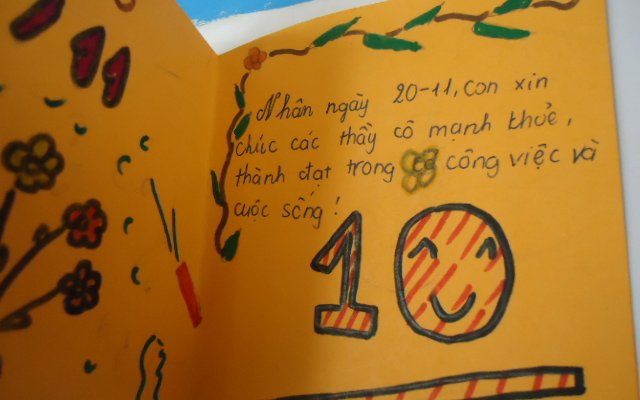 Nhân ngày 20-11, con xin
chúc các thầy cô mạnh khỏe,
thành đạt trong công việc và
cuộc sống!
10